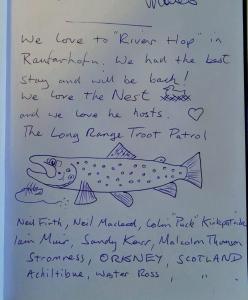 Wales
We love to "River Hop" in
Raufarhöfn. We had the best
stay and will be back!
We love the Nest
and we love he hosts.
The Long Range Troot Patrol
Neil Firth, Neil Macleod, Colin "Puck" Kirkpatrick
Iain Muir, Sandy Kerr, Malcolm Thomson
Stromness, ORKNEY, SCOTLAND
Achiltibuie, Wester Ross, " "